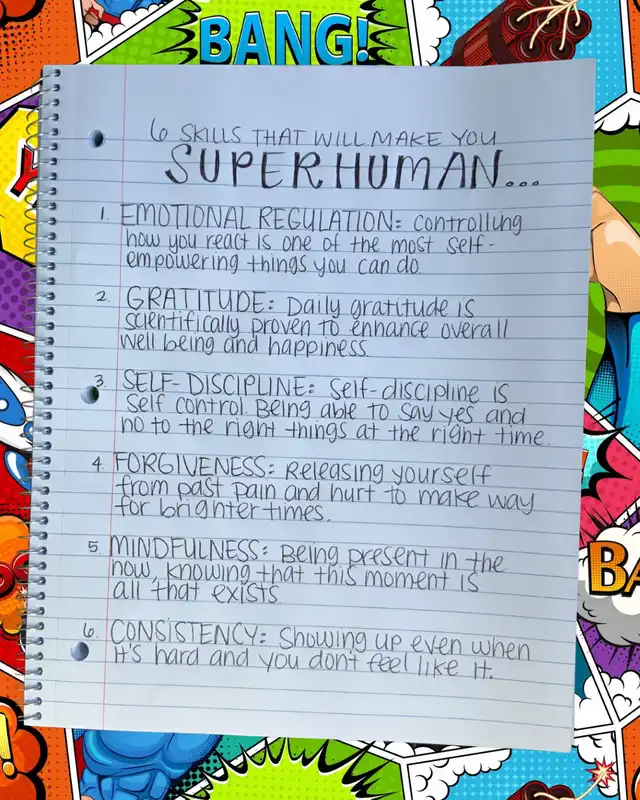 BANG!
6 SKILLS THAT WILL MAKE YOU
SUPERHUMAN...
1. EMOTIONAL REGULATION: Controlling
how you react is one of the most self-
empowering things you can do.
2. GRATITUDE: Daily gratitude is
scientifically proven to enhance overall
well being and happiness.
3. SELF-DISCIPLINE: Self-discipline is
self control. Being able to say yes and
no to the right things at the right time.
4. FORGIVENESS: Releasing yourself
from past pain and hurt to make way
for brighter times.
5. MINDFULNESS: Being present in the
now, knowing that this moment is
all that exists.
6. CONSISTENCY: Showing up even when
it's hard and you don't feel like it.